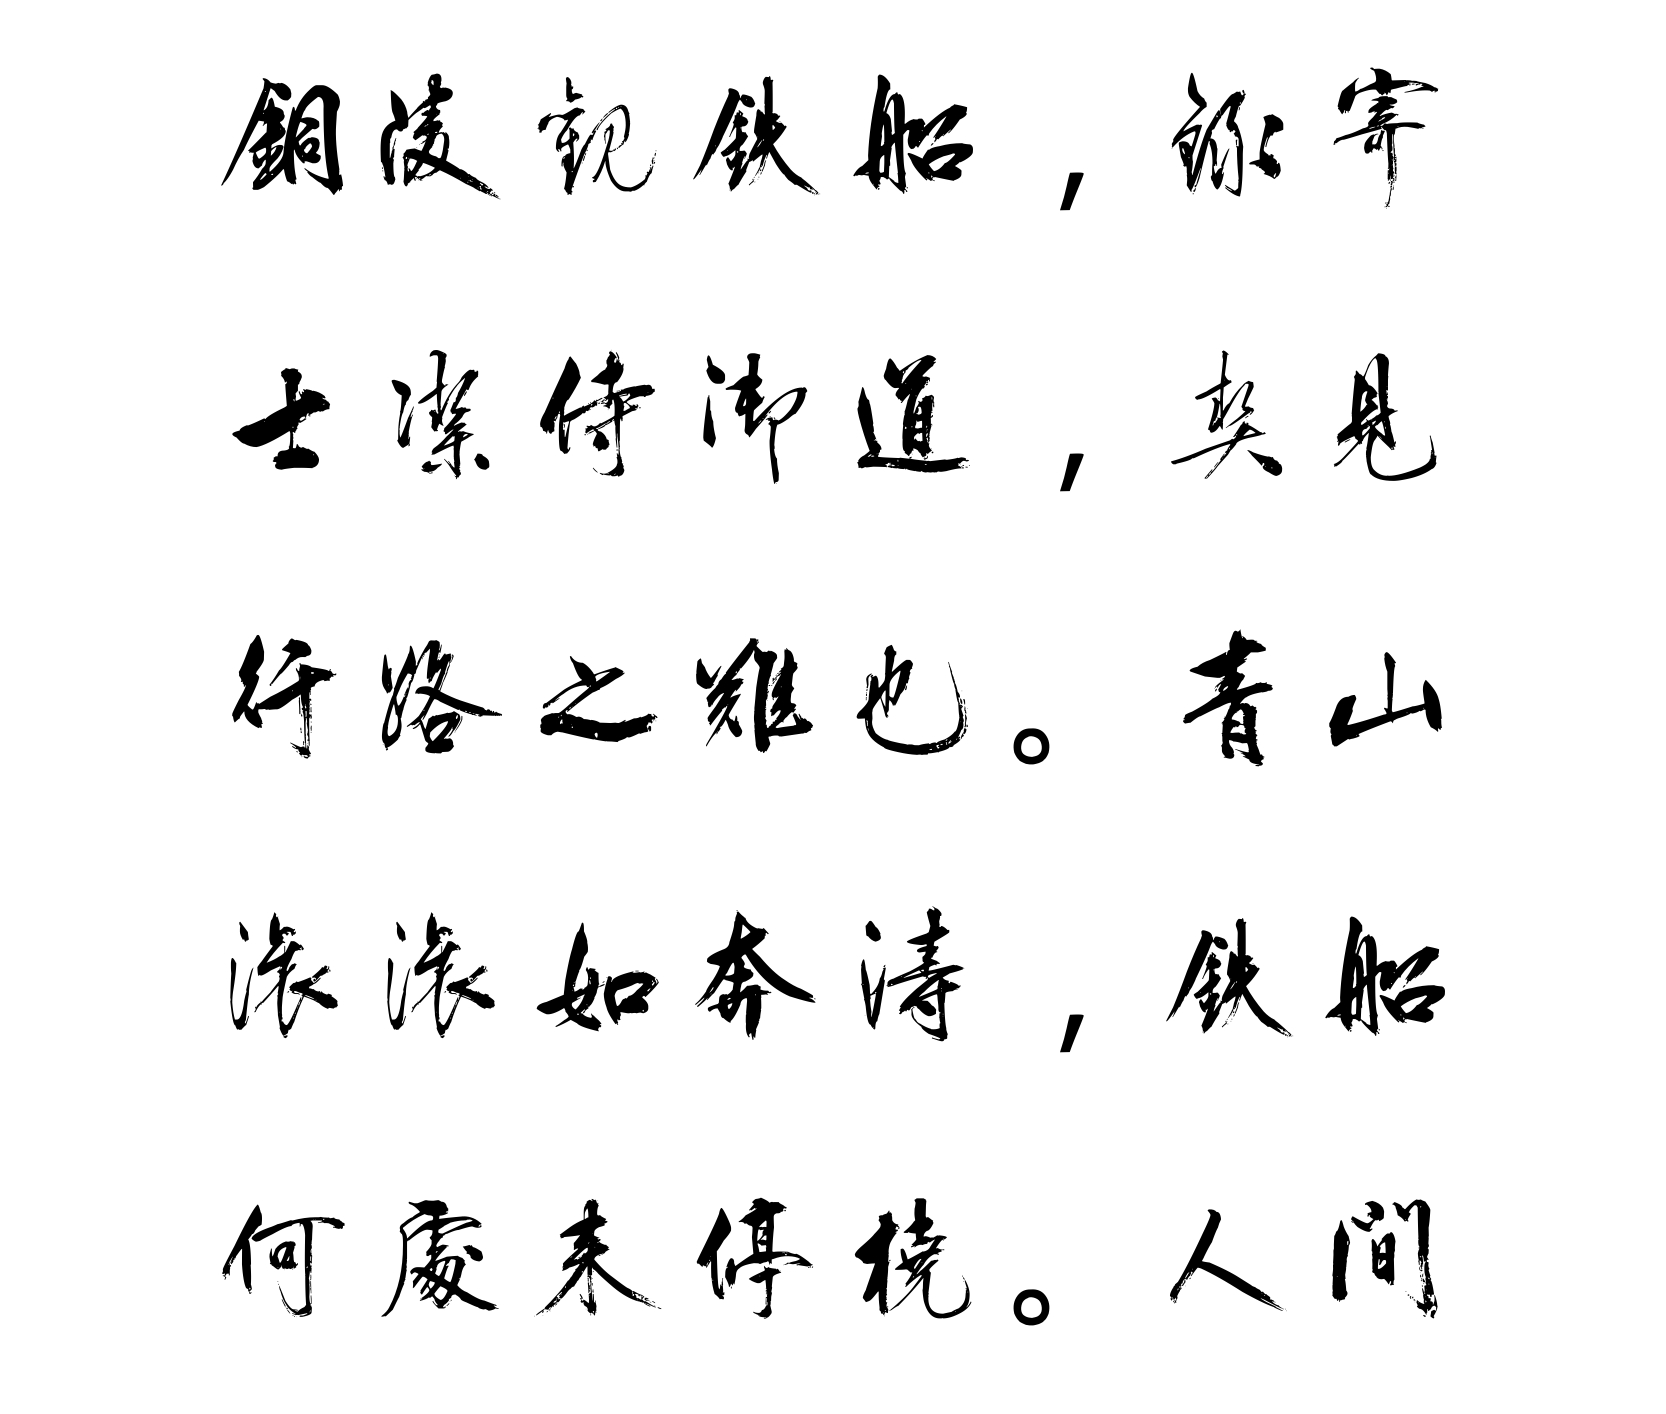 銅陵觀鉄船，錄寄
士潔侍御道，契見
行路之難也。青山
滾滾如奔濤，鉄船
何處来停橈。人間